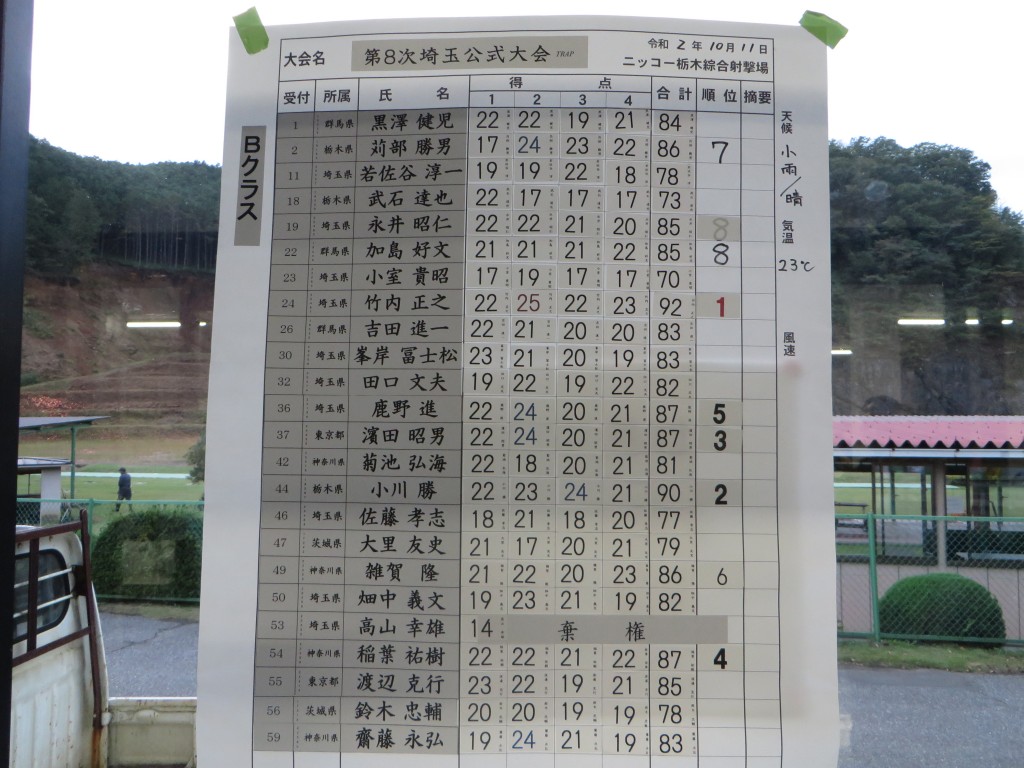 大会名 第8次埼玉公式大会 TRAP
令和 2 年 10 月 11 日
ニッコー栃木綜合射撃場
受付 所属 氏 名 得 点 合 計 順 位 摘要
1 2 3 4
Bクラス
1 群馬県 黒澤 健児 22 22 19 21 84
2 栃木県 苅部 勝男 17 24 23 22 86 7
11 埼玉県 若佐谷 淳一 19 19 22 18 78
18 栃木県 武石 達也 22 17 17 17 73
19 埼玉県 永井 昭仁 22 22 21 20 85 8
22 群馬県 加島 好文 21 21 21 22 85 8
23 埼玉県 小室 貴昭 17 19 17 17 70
24 埼玉県 竹内 正之 22 25 22 23 92 1
26 群馬県 吉田 進一 22 21 20 20 83
30 埼玉県 峯岸 冨士松 23 21 20 19 83
32 埼玉県 田口 文夫 19 22 19 22 82
36 埼玉県 鹿野 進 22 24 20 21 87 5
37 東京都 濱田 昭男 22 24 20 21 87 3
42 神奈川県 菊池 弘海 22 18 20 21 81
44 栃木県 小川 勝 22 23 24 21 90 2
46 埼玉県 佐藤 孝志 18 21 18 20 77
47 茨城県 大里 友史 21 17 20 21 79
49 神奈川県 雑賀 隆 21 22 20 23 86 6
50 埼玉県 畑中 義文 19 23 21 19 82
53 埼玉県 高山 幸雄 14 棄 権
54 神奈川県 稲葉 祐樹 22 22 21 22 87 4
55 東京都 渡辺 克行 23 22 19 21 85
56 茨城県 鈴木 忠輔 20 20 19 19 78
59 神奈川県 齋藤 永弘 19 24 21 19 83
天候 小雨/晴
気温 23℃
風速